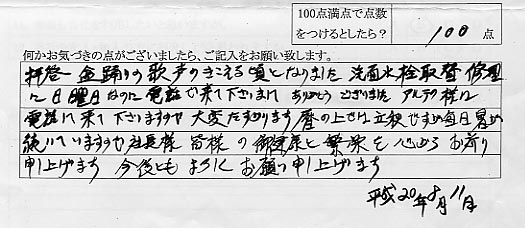 100点満点で点数
をつけるとしたら？ 100 点
何かお気づきの点がございましたら、ご記入をお願い致します。
拝啓 盆踊りの歌声のきこえる頃となりました 洗面水栓取替修理
に日曜日なのに電話で来て下さいまして ありがとうございました アルテク様は
電話に来て下さいますので大変たすかります 暦の上では立秋ですが毎日暑が
続いていますが社長様 皆様の御健康と繁栄を心からお祈り
申し上げます 今後ともよろしくお願い申し上げます
平成20年8月11日